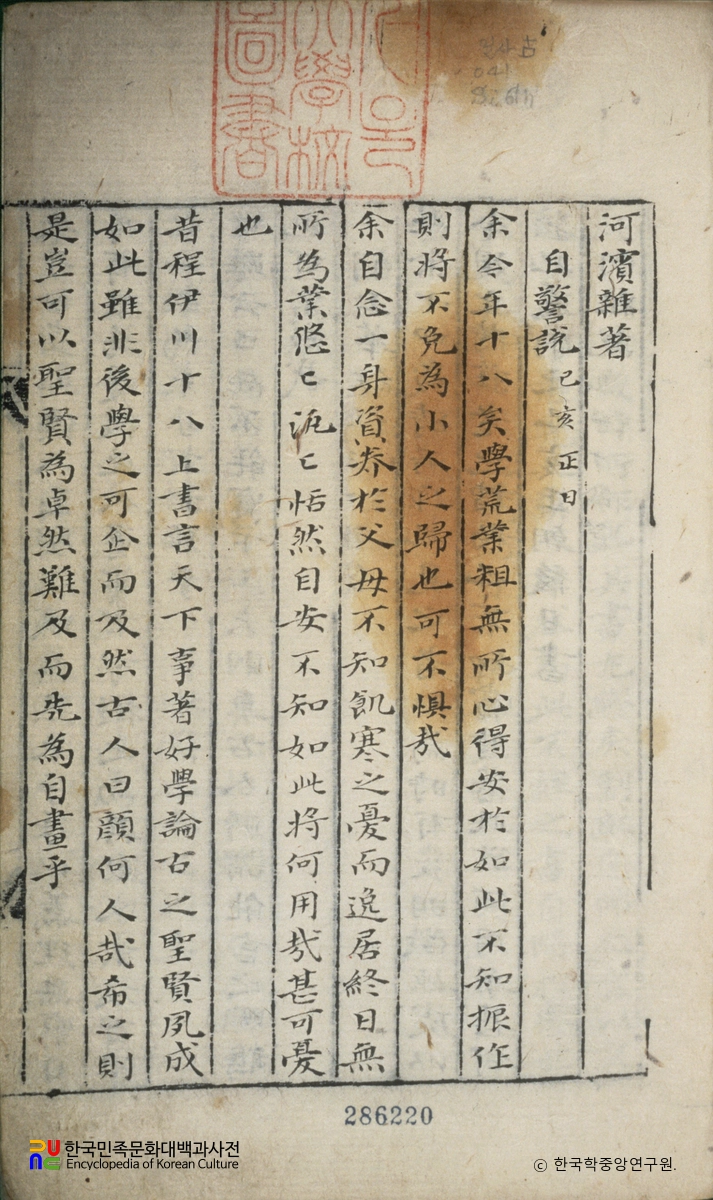 河濱雜著
自警說 己亥正日
余今年十八矣學荒業粗無所心得安於如此不知振作
則將不免為小人之歸也可不懼哉
余自念一身資養於父母不知飢寒之憂而逸居終日無
所為業悠〻泛〻恬然自安不知如此將何用哉甚可憂
也
昔程伊川十八上書言天下事著好學論古之聖賢夙成
如此雖非後學之可企而及然古人曰顔何人哉希之則
是豈可以聖賢為卓然難及而先為自畫乎
圖書
學校
286220
한국민족문화대백과사전
Encyclopedia of Korean Culture
ⓒ 한국학중앙연구원.